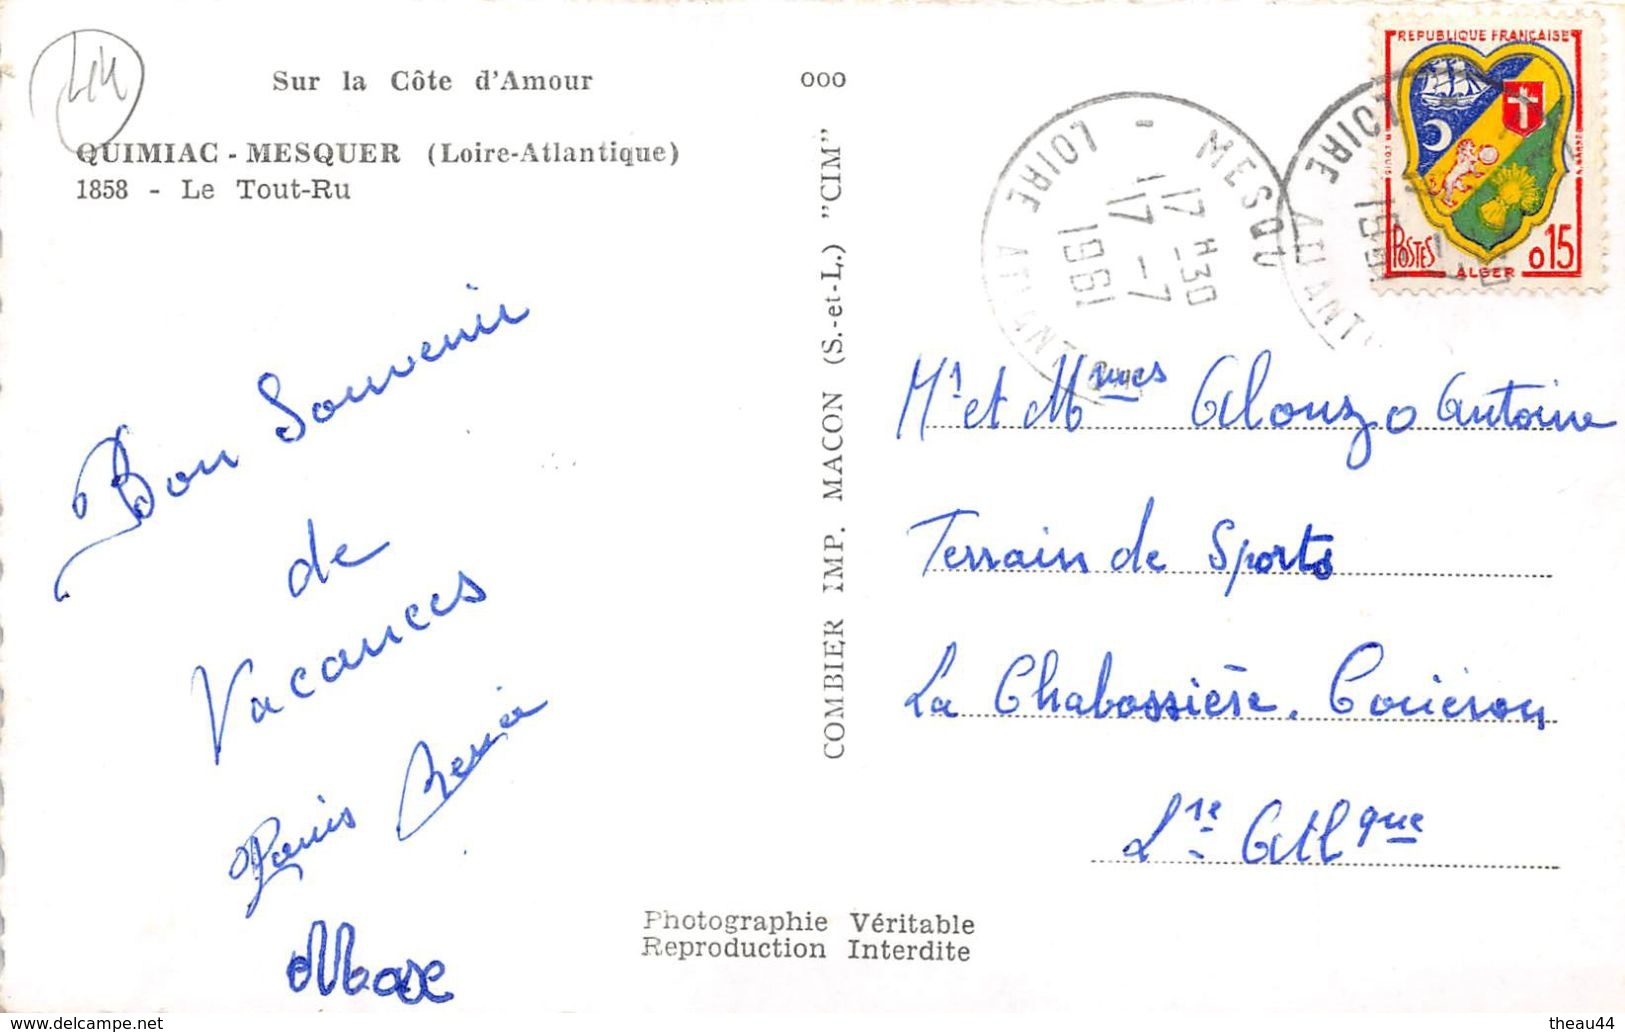 44
Sur la Côte d'Amour
000
QUIMIAC - MESQUER (Loire-Atlantique)
1858 - Le Tout-Ru
Bon Souvenir
de
Vacances
Max
COMBIER IMP. MACON (S.-et-L.) "CIM"
Photographie Véritable
Reproduction Interdite
MESQU
17 H 30
17 - 7
1961
LOIRE ATLANTI
REPUBLIQUE FRANÇAISE
POSTES
ALGER
0 15
LOIRE ATLANT
1961
Mr et Mmes Alonzo Antoine
Terrain de Sports
La Chabossière. Couëron
Lre Atlque
theau44